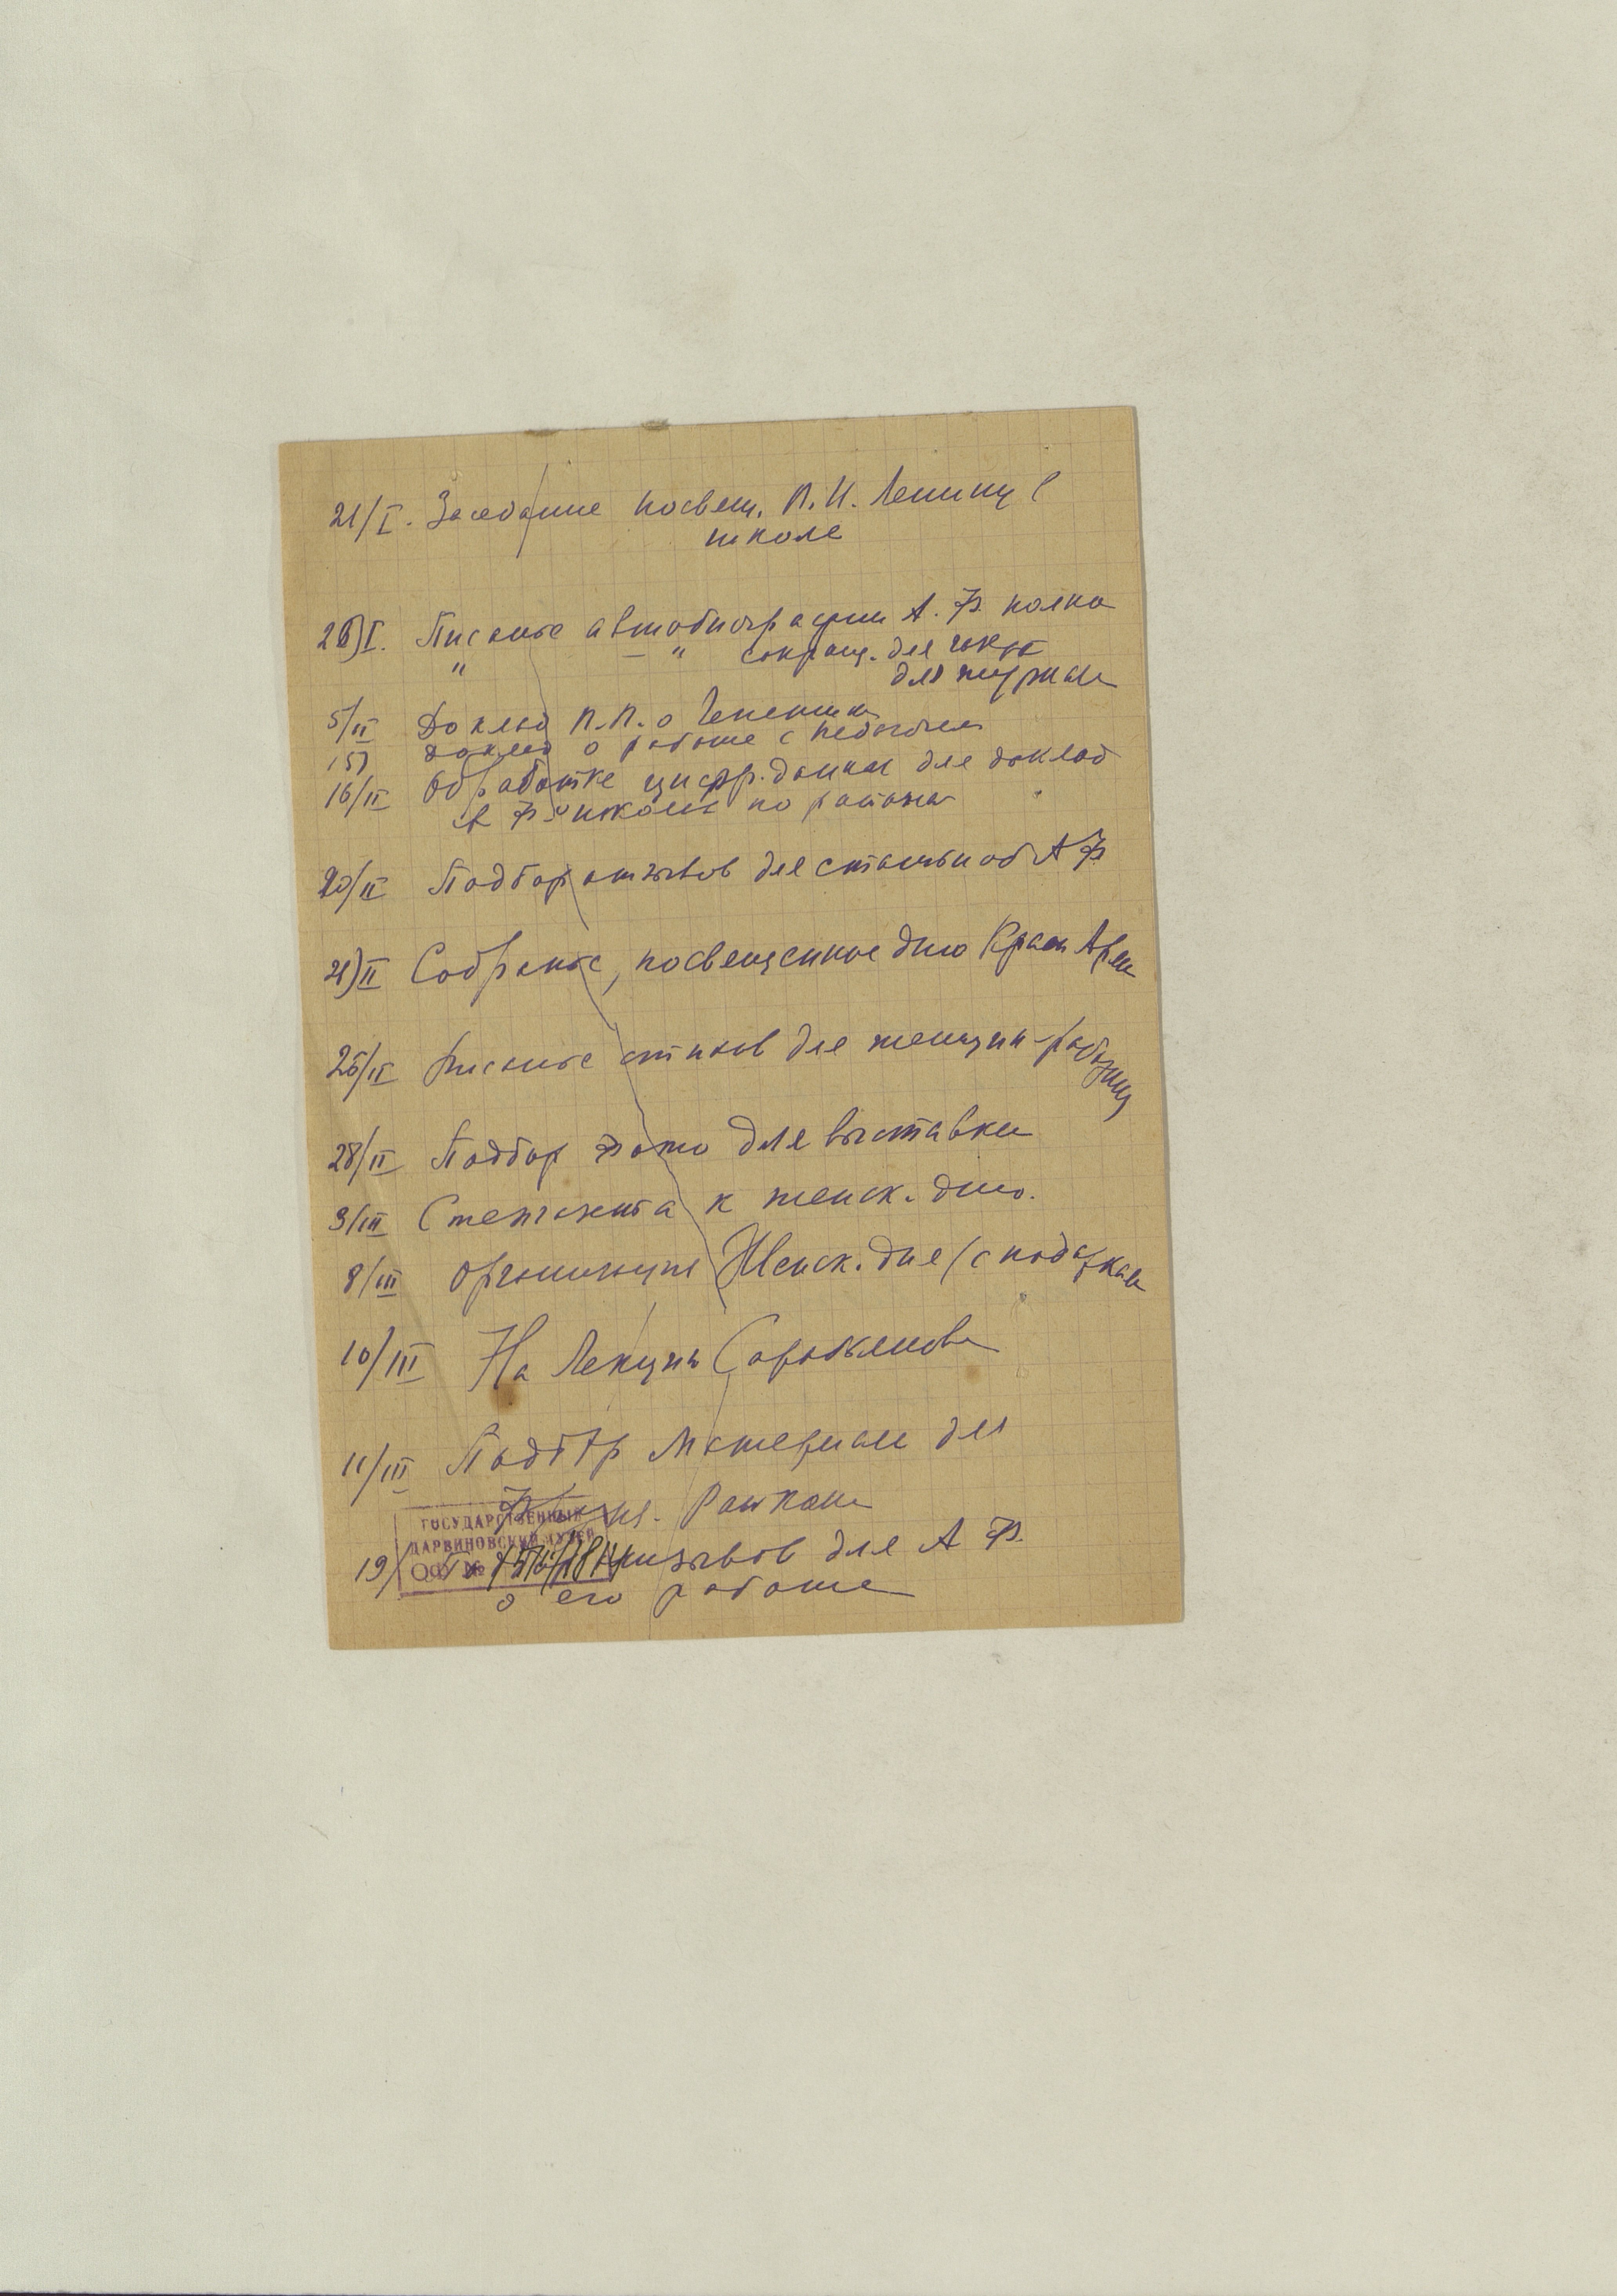 21/I. Заседание посвящ. В. И. Ленину в
школе
26/I. Писание автобиографии А. Ф. полна
" — " сокращ. для
для журнала
5/II Доклад П.П. о
15) Доклад о работе с
16/II Обработке цифр. данных для доклад
А. Ф. по
20/II Подбор отзывов для статьи об А Ф
21/II Собрание, посвещенное дню Красн Арм
25/II Писание стихов для женщин-работниц
28/II Подбор фото для выставки
3/III Стенгазета к женск. дню.
8/III Организация Женск. дня (с подарками
10/III На Лекции
11/III Подбор материала для
19/ отзывов для А Ф.
о его работе
ГОСУДАРСТВЕННЫЙ
ДАРВИНОВСКИЙ МУЗЕЙ
№